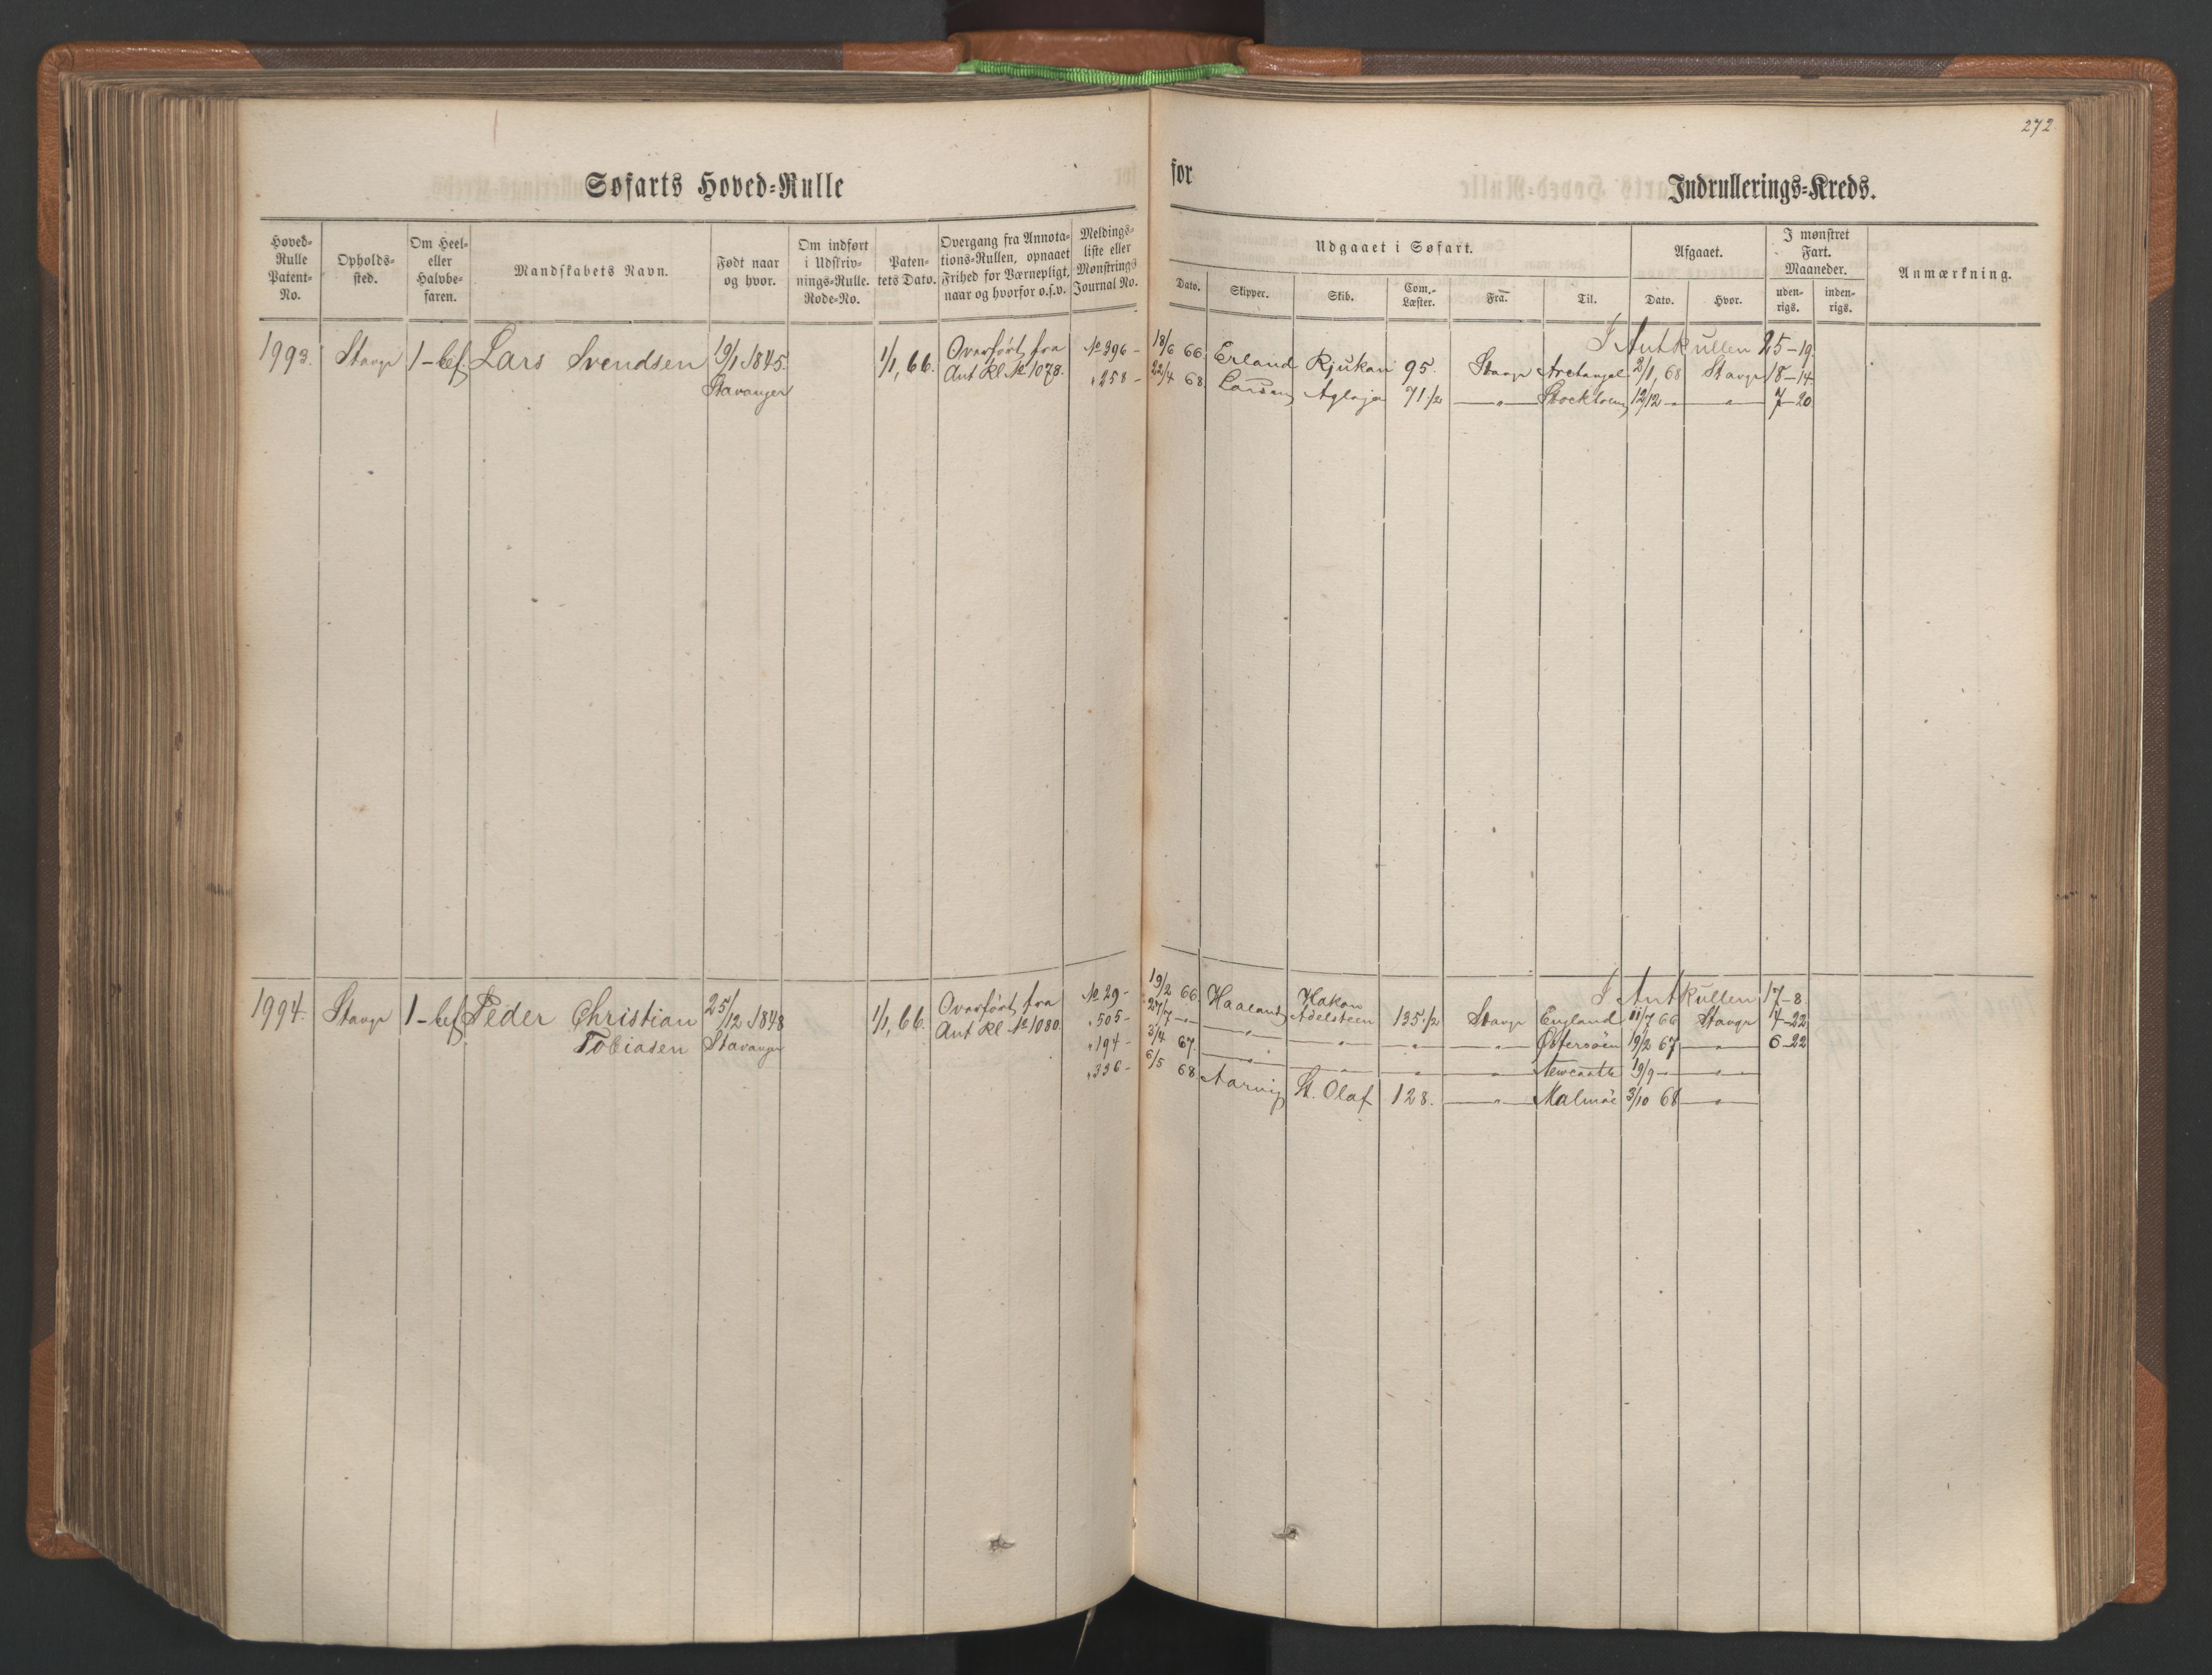 272
Søfarts Hoved-Rulle for Indrullerings-Kreds.
Hoved-Rulle Patent-No.
Opholds-sted.
Om Heel- eller Halvbe-faren.
Mandskabets Navn.
Født naar og hvor.
Om indført i Udskriv-nings-Rulle. Rode-No.
Paten-tets Dato.
Overgang fra Annota-tions-Rullen, opnaaet Frihed for Værnepligt, naar og hvorfor o.s.v.
Meldings-liste eller Mønstrings Journal No.
Udgaaet i Søfart.
Dato.
Skipper.
Skib.
Com.-Læster.
Fra.
Til.
Afgaaet.
Dato.
Hvor.
I mønstret Fart. Maaneder.
uden-rigs.
inden-rigs.
Anmærkning.
I Ant Rullen 25-19.
1993. Stavgr 1-bef. Lars Svendsen 19/1 1845. 1/1, 66. Overført fra № 396- 18/6 66 Erland Rjukan 95. Stavgr Archangel 2/1, 68 Stavgr 18-14
Stavanger Ant Rl № 1078. " 258- 22/4 68 Larsen Aglaja 71 1/2 — " — Stockholm 12/12 - — " — 7-20
I Ant Rullen 17-8.
1994. Stavgr 1-bef Peder Christian 25/12 1848 1/1, 66. Overført fra № 29- 19/2 66 Haaland Hakon Adelsteen 135 1/2 Stavgr England 11/7 66 Stavgr 4-22
Tobiasen Stavanger Ant Rl № 1080. " 505- 27/7 - — " — — " — — " — — " — Østersøen 19/2 67 — " — 6-22
" 194- 3/4 67 — " — — " — — " — — " — Newcastle 19/9 - — " —
" 336- 6/5 68 Aarvig St. Olaf 128. — " — Malmöe 3/10 68 — " —